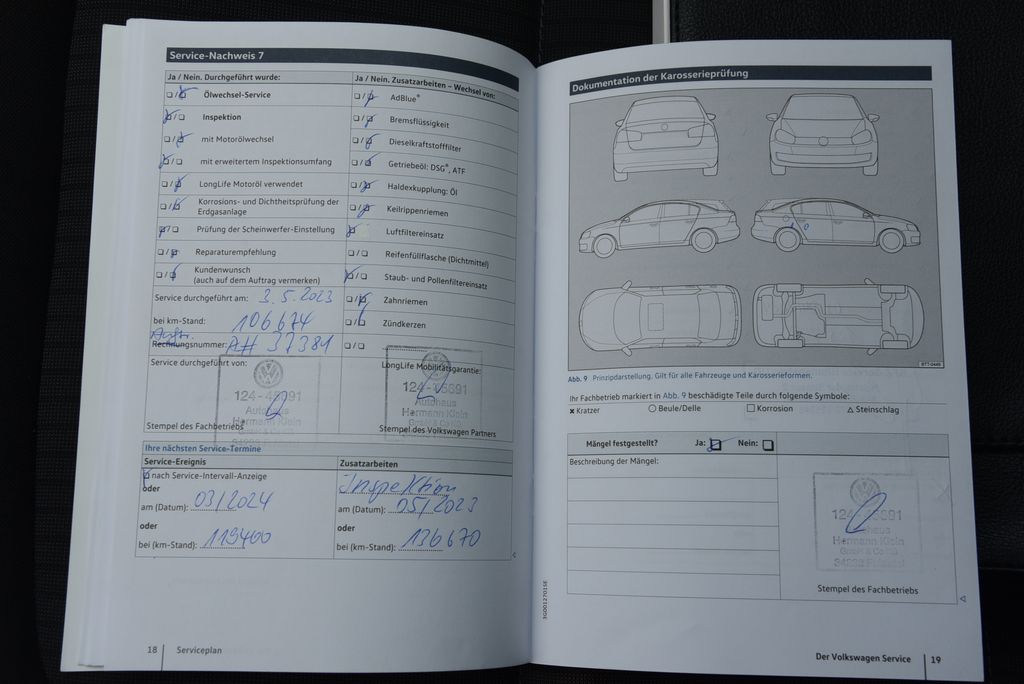 Service-Nachweis 7
Ja / Nein. Durchgeführt wurde:
Ölwechsel-Service
Inspektion
mit Motorölwechsel
mit erweitertem Inspektionsumfang
LongLife Motoröl verwendet
Korrosions- und Dichtheitsprüfung der
Erdgasanlage
Prüfung der Scheinwerfer-Einstellung
Reparaturempfehlung
Kundenwunsch
(auch auf dem Auftrag vermerken)
Service durchgeführt am: 3.5.2023
bei km-Stand: 106674
Rechnungsnummer: AH 37381
Service durchgeführt von:
Autohaus
Hermann Klein
Stempel des Fachbetriebs
Ja / Nein. Zusatzarbeiten – Wechsel von:
AdBlue®
Bremsflüssigkeit
Dieselkraftstofffilter
Getriebeöl: DSG®, ATF
Haldexkupplung: Öl
Keilrippenriemen
Luftfiltereinsatz
Reifenfüllflasche (Dichtmittel)
Staub- und Pollenfiltereinsatz
Zahnriemen
Zündkerzen
LongLife Mobilitätsgarantie:
Autohaus
Hermann Klein
Stempel des Volkswagen Partners
Ihre nächsten Service-Termine
Service-Ereignis
nach Service-Intervall-Anzeige
oder
am (Datum): 03/2024
oder
bei (km-Stand):
Zusatzarbeiten
Inspektion
am (Datum): 05/2023
oder
bei (km-Stand): 136670
18 Serviceplan
Dokumentation der Karosserieprüfung
B1T-0445
Abb. 9 Prinzipdarstellung. Gilt für alle Fahrzeuge und Karosserieformen.
Ihr Fachbetrieb markiert in Abb. 9 beschädigte Teile durch folgende Symbole:
x Kratzer Beule/Delle Korrosion Steinschlag
Mängel festgestellt? Ja: Nein:
Beschreibung der Mängel:
Hermann Klein
GmbH & Co KG
Stempel des Fachbetriebs
3G0012701SE
Der Volkswagen Service 19